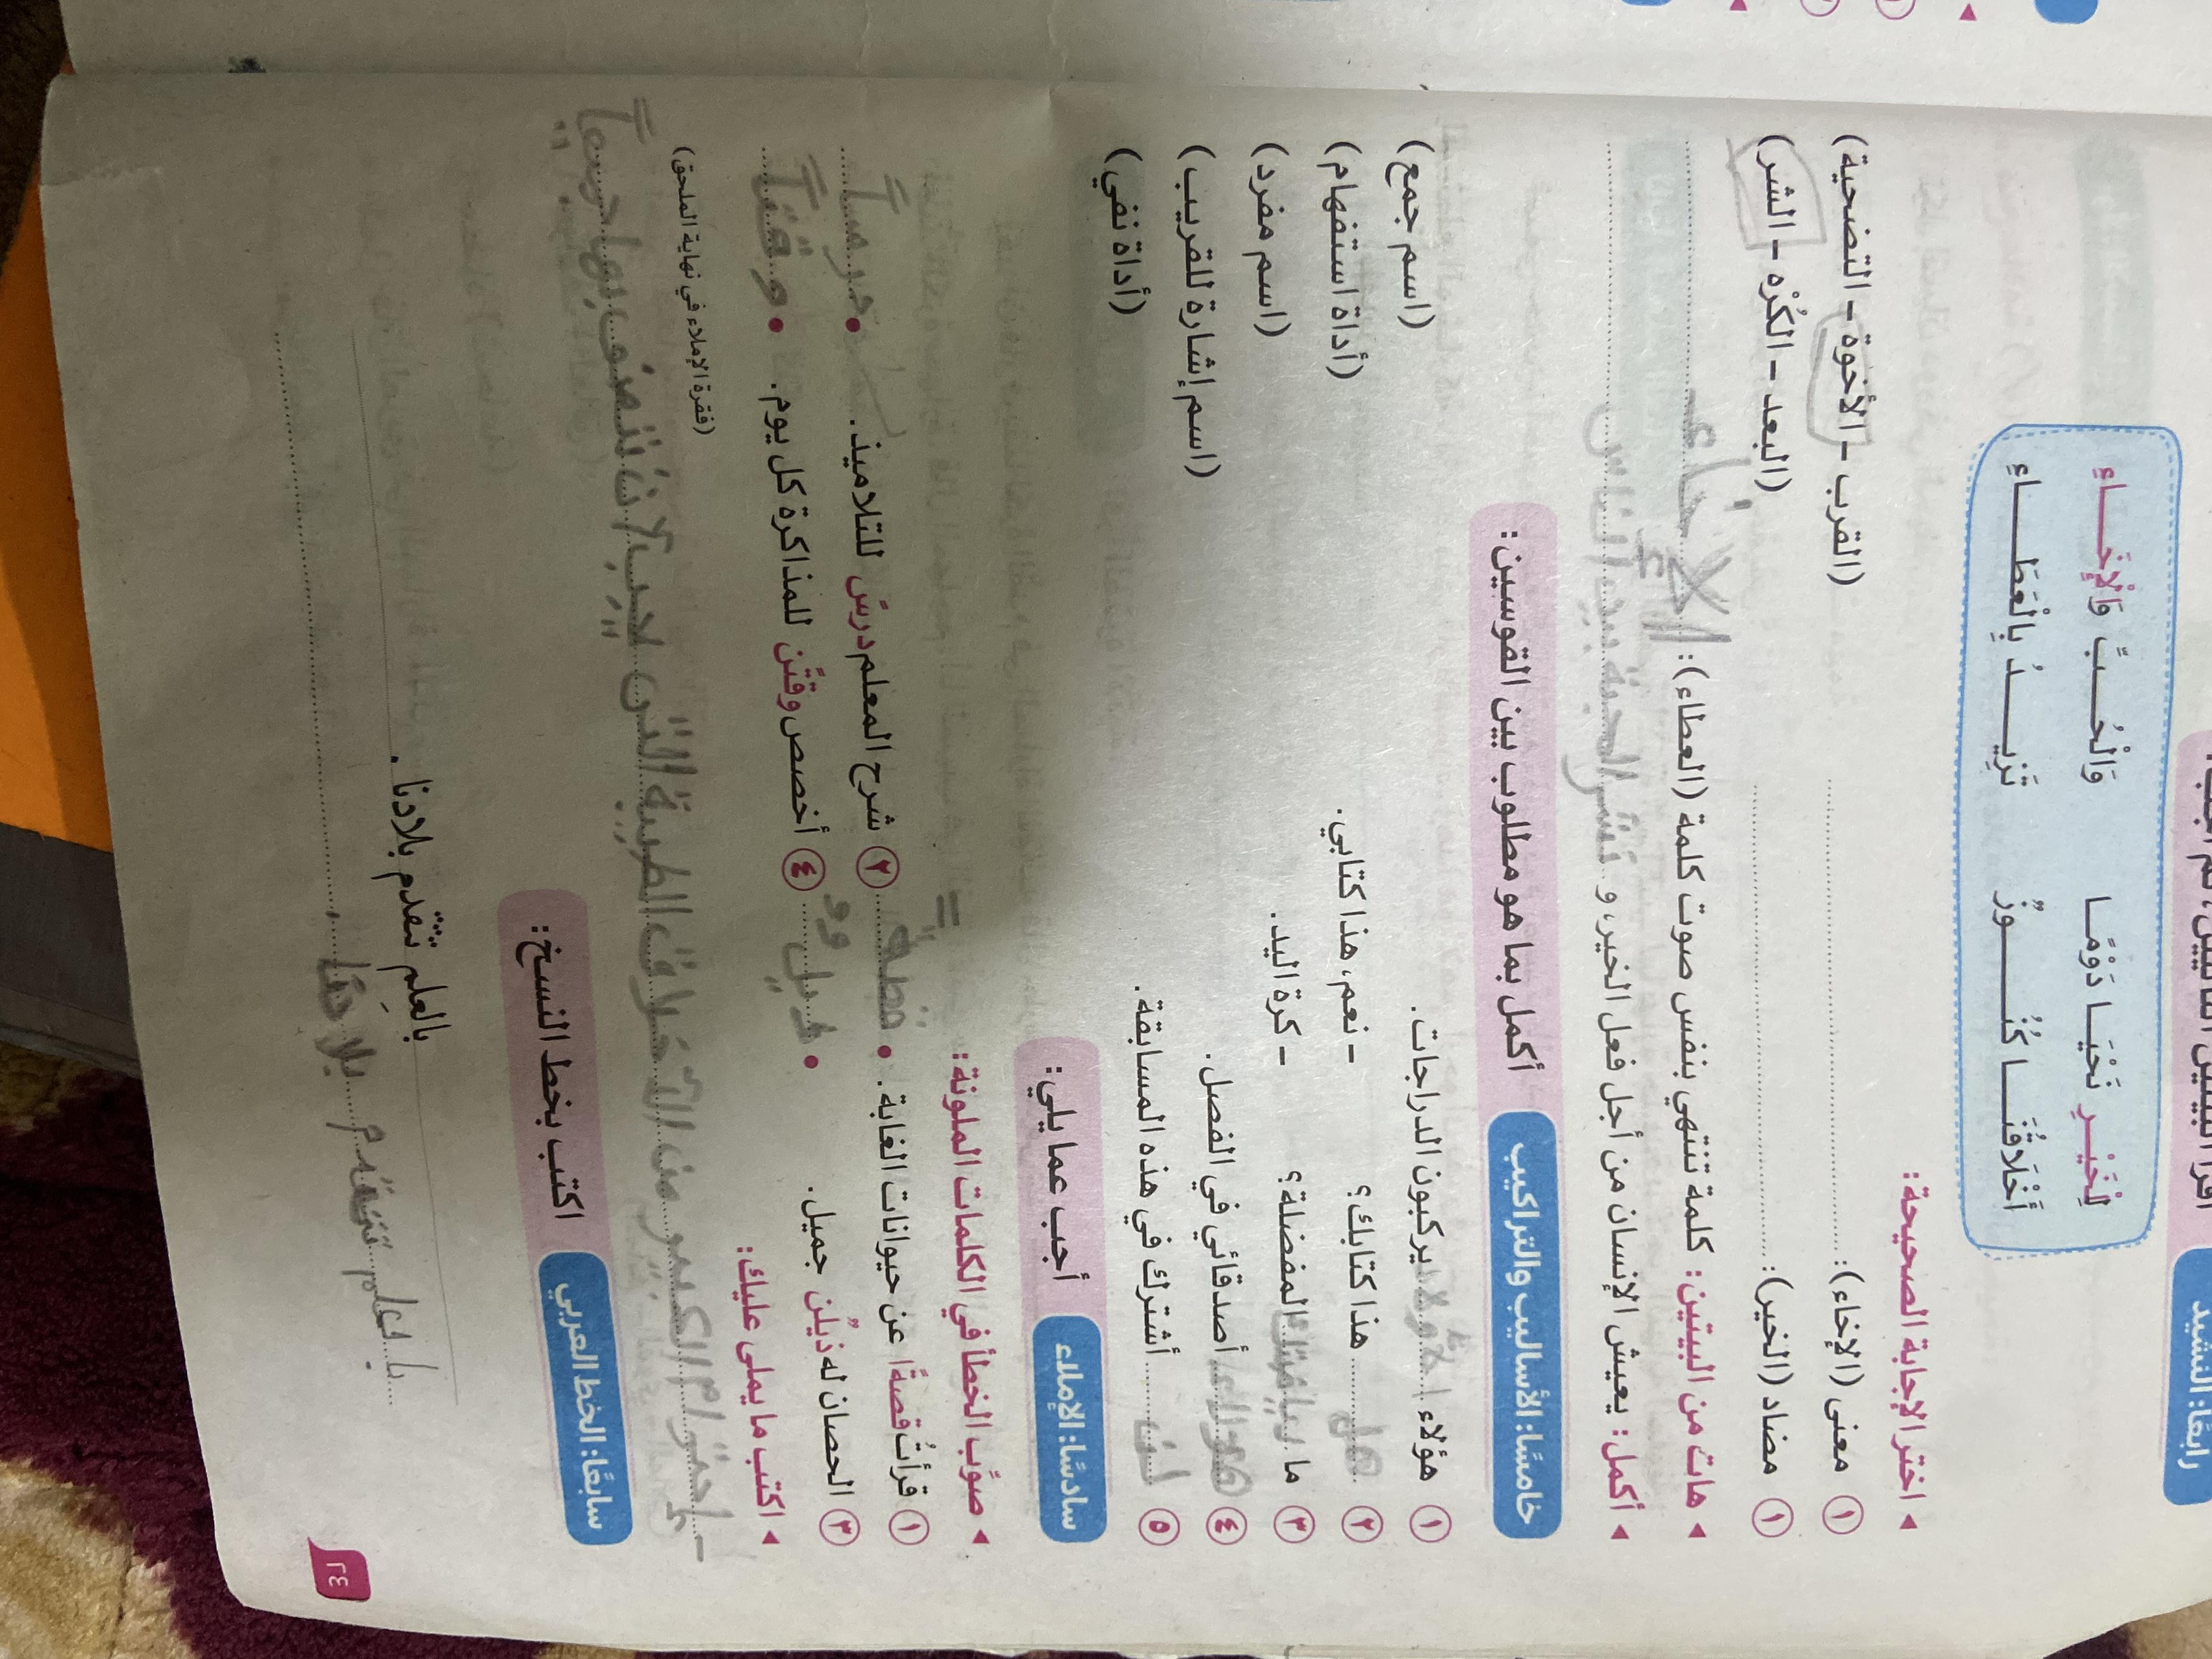 رابعًا: النشيد
لِلْخَيْــرِ نَحْيَــا دَوْمًــا وَالْحُـــبَّ وَالْإِخَـــاءِ
أَخْلَاقُنَـــا كُنُـــــوزٌ تَزِيـــــدُ بِالْعَطَـــــاءِ
◂ اختر الإجابة الصحيحة:
١ معنى (الإخاء): (القرب - الأخوة - التضحية)
١ مضاد (الخير): (البعد - الكُرْه - الشر)
◂ هات من البيتين: كلمة تنتهي بنفس صوت كلمة (العطاء): الإخاء
◂ أكمل: يعيش الإنسان من أجل فعل الخير، و نشر المحبة بين الناس
خامسًا: الأساليب والتراكيب أكمل بما هو مطلوب بين القوسين:
١ هؤلاء يركبون الدراجات. (اسم جمع)
٢ هل هذا كتابك؟ - نعم، هذا كتابي. (أداة استفهام)
٣ ما المفضلة؟ - كرة اليد. (اسم مفرد)
٤ أصدقائي في الفصل. (اسم إشارة للقريب)
٥ لن أشترك في هذه المسابقة. (أداة نفي)
سادسًا: الإملاء أجب عما يلي:
◂ صوِّب الخطأ في الكلمات الملونة:
١ قرأتُ قصةًا عن حيوانات الغابة. • قصةً ٢ شرح المعلم درسً للتلاميذ. • درساً
٣ الحصان له ذيلُن جميل. • ذيلٌ ٤ أخصص وقتًن للمذاكرة كل يوم. • وقتاً
◂ اكتب ما يملى عليك: (فقرة الإملاء في نهاية الملحق)
- إحترام الكبير من الأخلاق الطيبة التي يجب أن نتصف بها جميعاً
سابعًا: الخط العربي اكتب بخط النسخ:
بالعلم تتقدم بلادنا.
بالعلم تتقدم بلادنا
٢٤